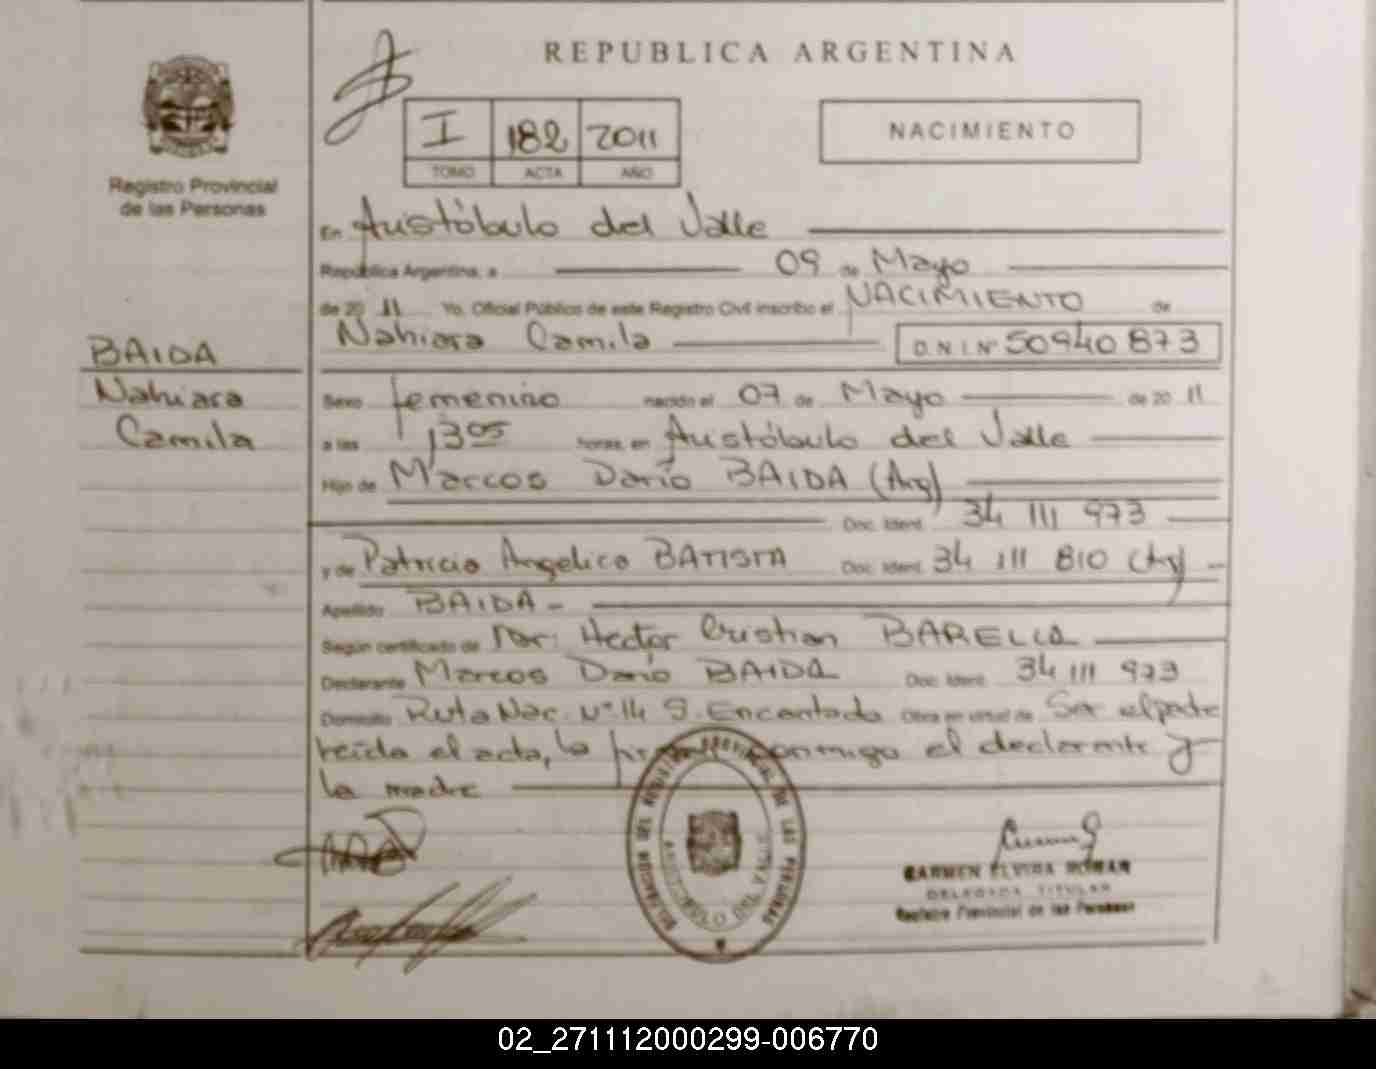 REPUBLICA ARGENTINA
I 182 2011
TOMO ACTA AÑO
NACIMIENTO
Registro Provincial
de las Personas
En Aristóbulo del Valle
República Argentina, a 09 de Mayo
de 20 11 Yo, Oficial Público de este Registro Civil inscribo el NACIMIENTO de
Nahiara Camila D.N.I.Nº 50940873
BAIDA
Nahiara
Camila
Sexo femenino nacido el 07 de Mayo de 20 11
a las 13 05 horas, en Aristóbulo del Valle
Hijo de Marcos Darío BAIDA (Arg)
Doc. Ident. 34 111 973
y de Patricia Angelica BATISTA Doc. Ident. 34 111 810 (Arg)
Apellido BAIDA
Según certificado de Dr: Hector Cristian BARELLA
Declarante Marcos Darío BAIDA Doc. Ident. 34 111 973
Domicilio Ruta Nac. Nº 14 S. Encantado Obra en virtud de Ser el padre
leída el acta, la conmigo el declarante y
la madre
REGISTRO PROVINCIAL DE LAS PERSONAS
ARISTOBULO DEL VALLE
CARMEN ELVIRA ROMAN
DELEGADA TITULAR
Registro Provincial de las Personas
02_271112000299-006770